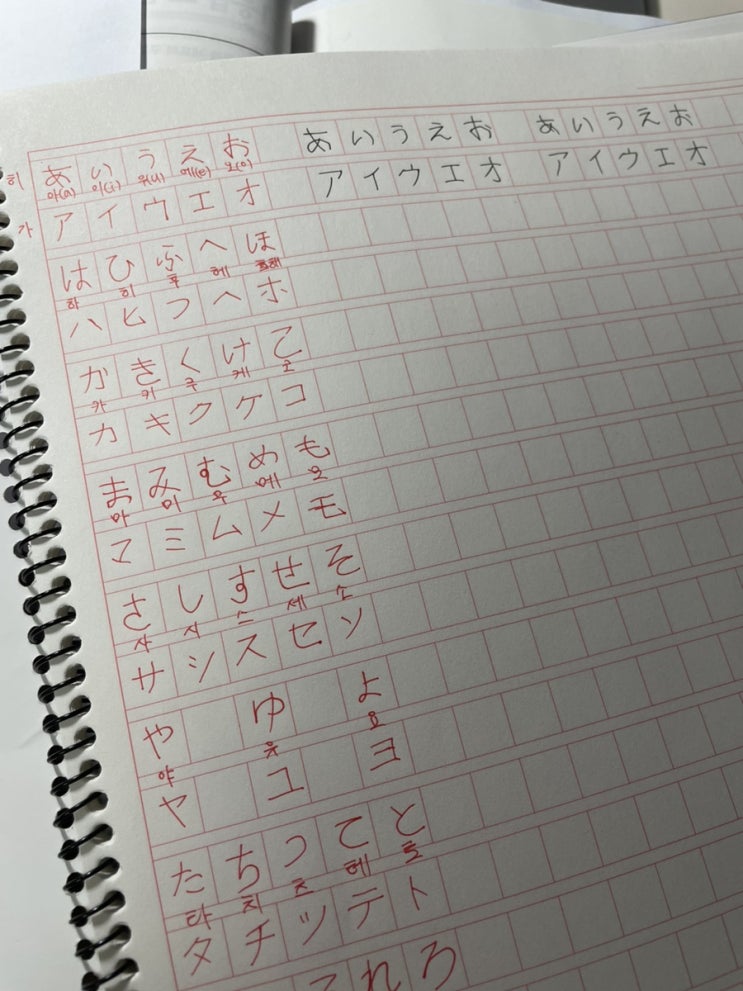 히 あ い う え お あ い う え お あ い う え お
아(a) 이(i) 우(u) 에(e) 오(o)
가 ア イ ウ エ オ ア イ ウ エ オ ア イ ウ エ オ
は ひ ふ へ ほ
하 히 후 헤
ハ ヒ フ ヘ ホ
か き く け こ
카 키 쿠 케 코
カ キ ク ケ コ
ま み む め も
마 미 무 메 모
マ ミ ム メ モ
さ し す せ そ
사 시 스 세 소
サ シ ス セ ソ
や ゆ よ
야 유 요
ヤ ユ ヨ
た ち つ て と
타 치 츠 테 토
タ チ ツ テ ト
れ ろ